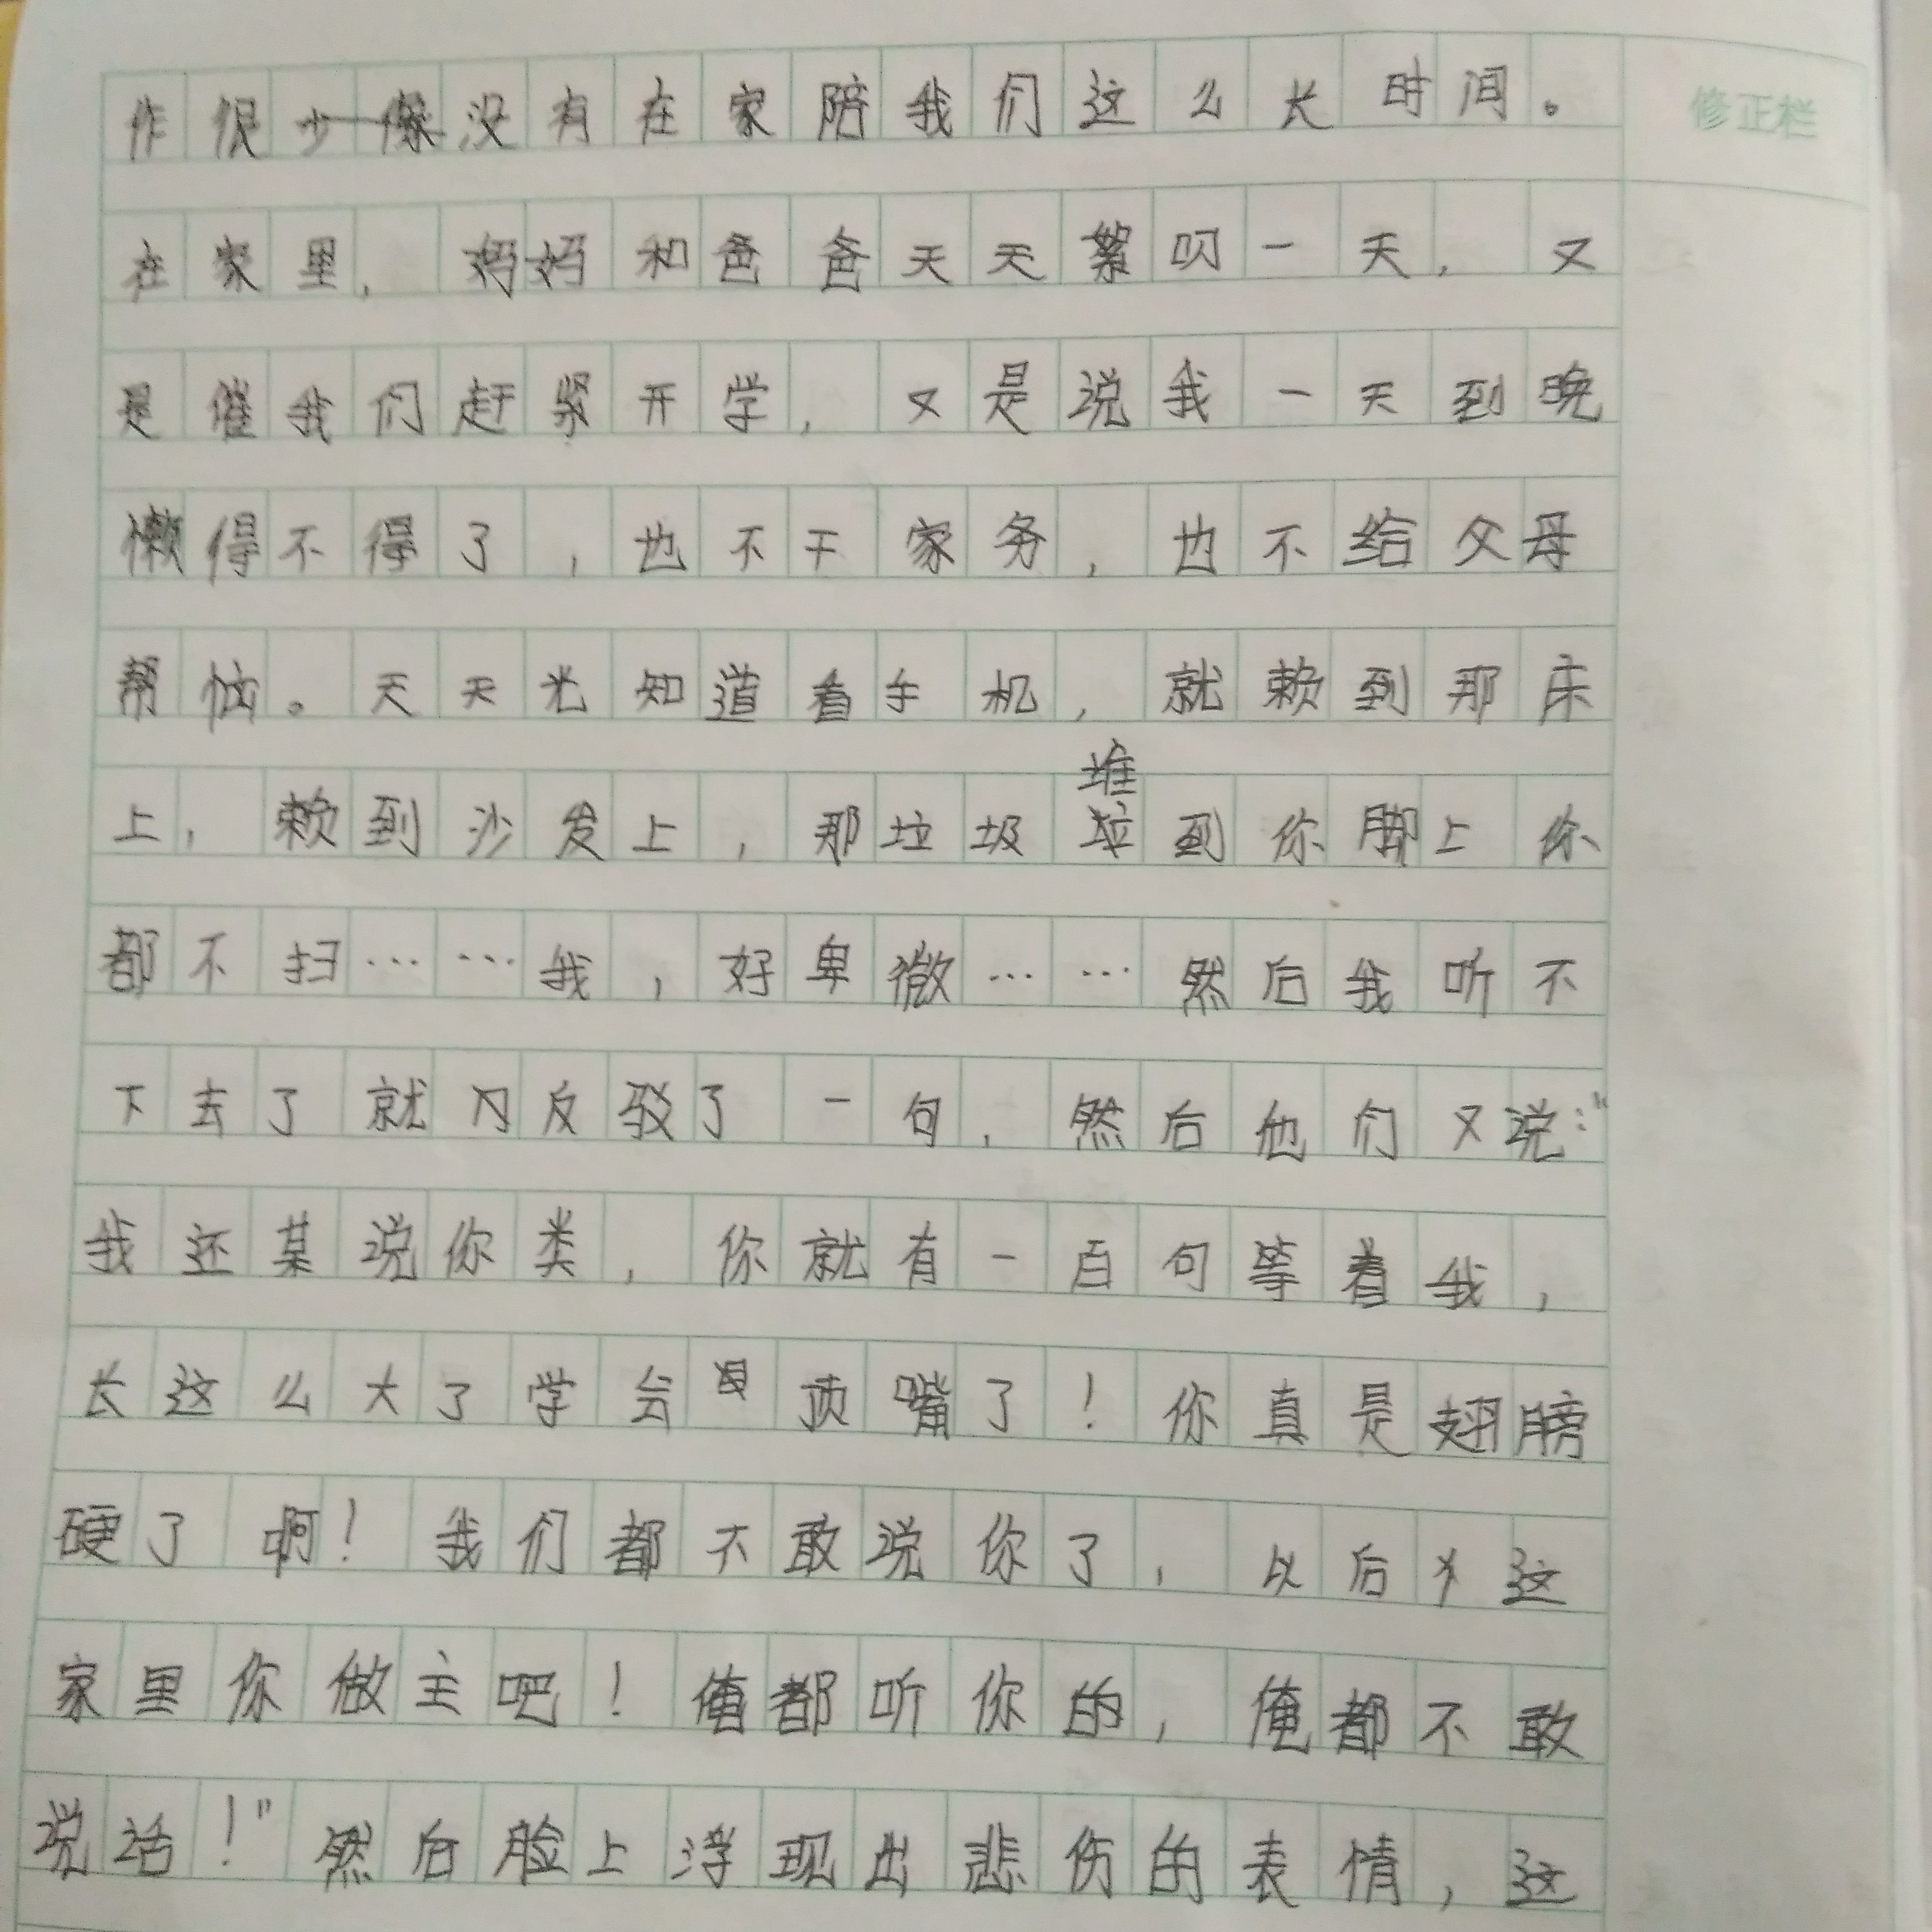 作很少像没有在家陪我们这么长时间。
修正栏
在家里，妈妈和爸爸天天絮叨一天，又
是催我们赶紧开学，又是说我一天到晚
懒得不得了，也不干家务，也不给父母
帮忙。天天光知道看手机，就赖到那床
堆
上，赖到沙发上，那垃圾到你脚上你
都不扫……我，好卑微……然后我听不
下去了就反驳了一句，然后他们又说："
我还某说你类，你就有一百句等着我，
长这么大了学会顶嘴了！你真是翅膀
硬了啊！我们都不敢说你了，以后这
家里你做主吧！俺都听你的，俺都不敢
说话！"然后脸上浮现出悲伤的表情，这